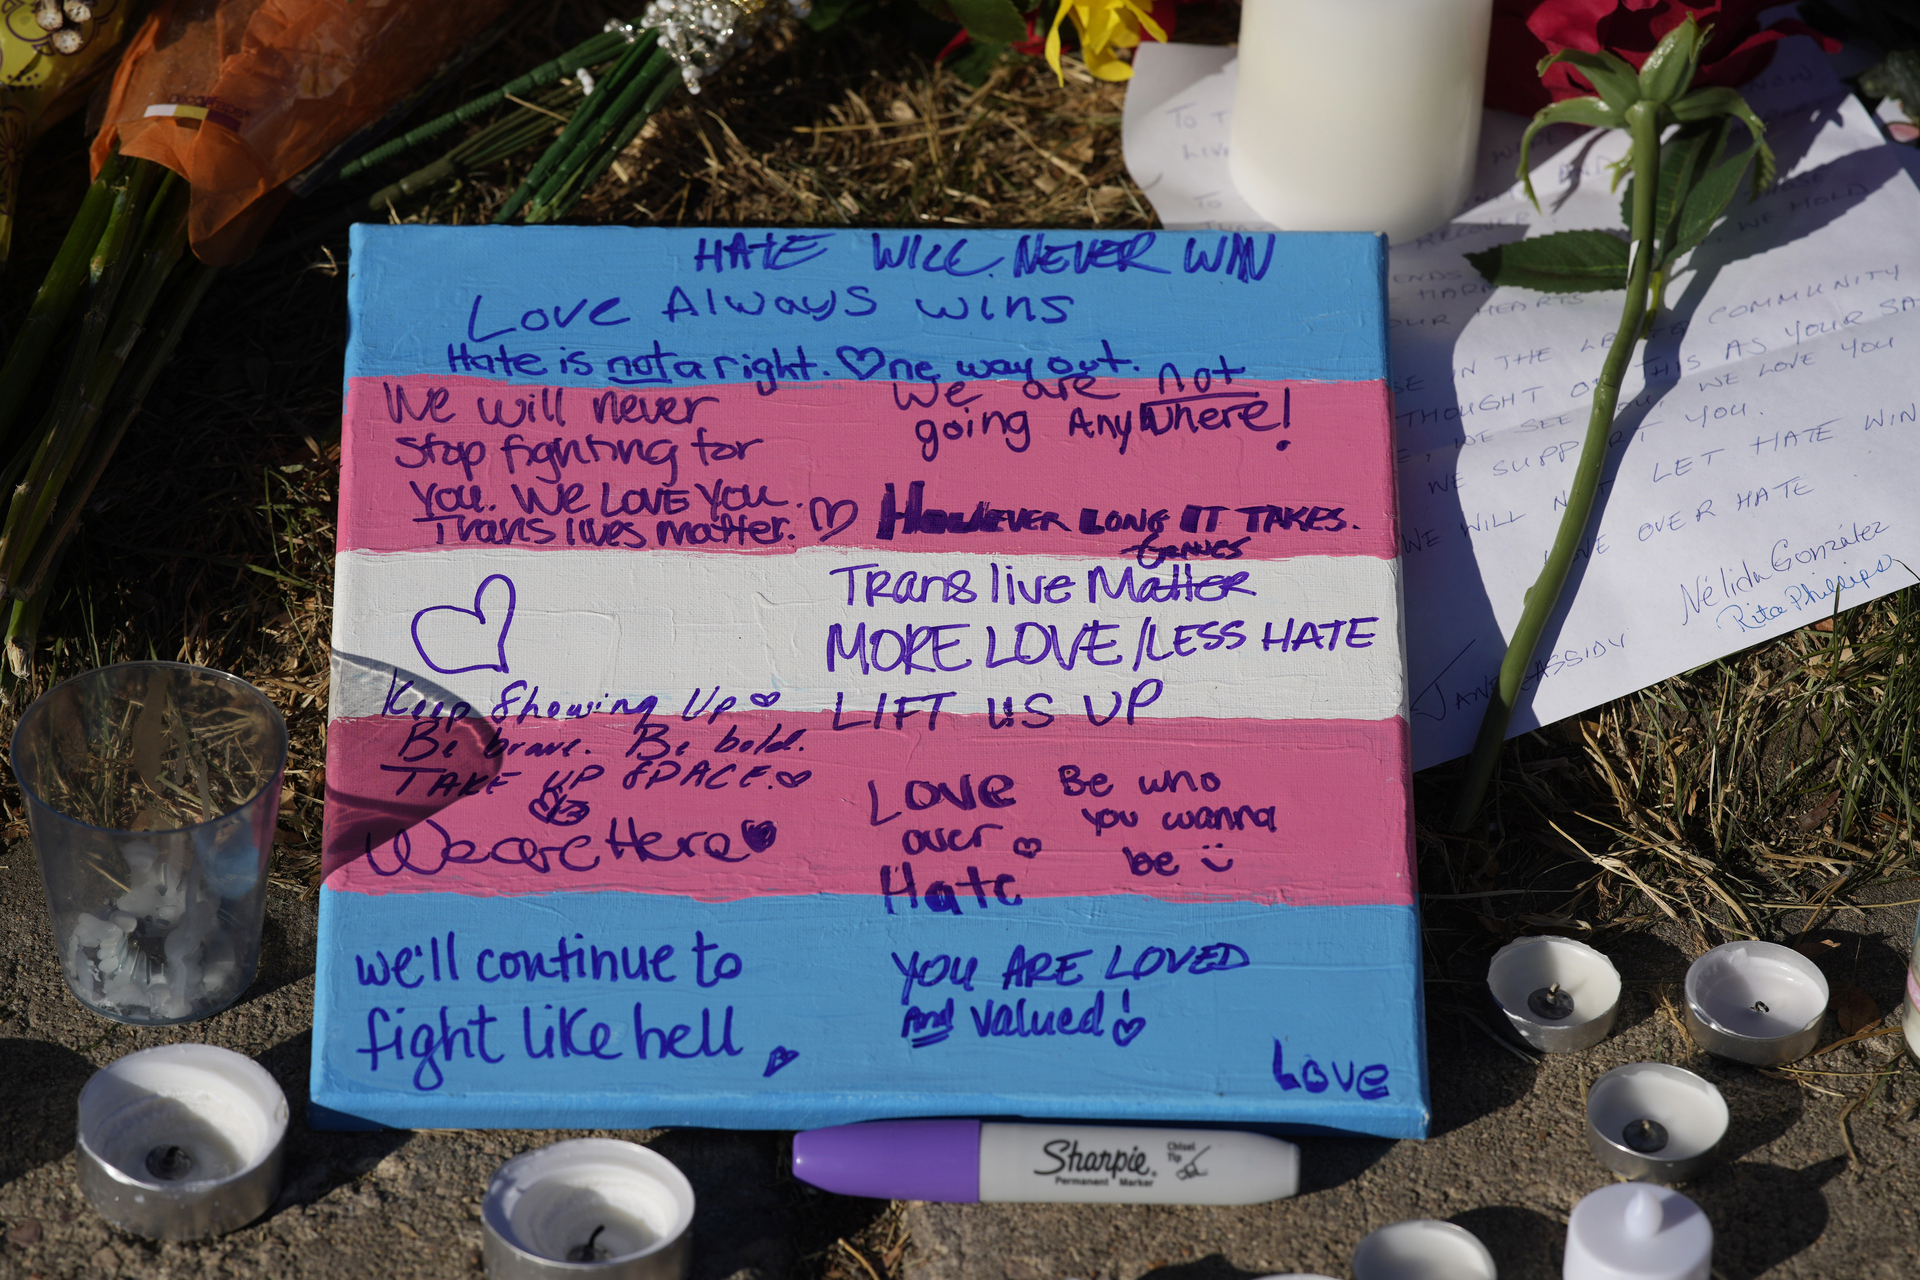 HATE WILL NEVER WIN
Love Always wins
Hate is not a right. ♡ne way out.
We will never
stop fighting for
you. We LOVE You.
Trans lives matter. ♡
We are not
going Anywhere!
However LONG IT TAKES.
Trans live Matter
MORE LOVE/LESS HATE
LIFT US UP
Keep Showing Up ♡
Be brave. Be bold.
TAKE UP SPACE. ♡
We are Here ♥
Love
over ♡
Hate
Be who
you wanna
be
we'll continue to
fight like hell
YOU ARE LOVED
And valued!
Love
Sharpie
Permanent Marker
Chisel
Tip
TO
LIV
TO
RECOVER
WE HOLD
HEARTS
IN THE COMMUNITY
THOUGHT THIS AS YOUR SA
WE SEE YOU, WE LOVE YOU
WE SUPPORT YOU.
WE WILL NOT LET HATE WIN
LOVE OVER HATE
Nélida González
Rita Phillips
JANE CASSIDY